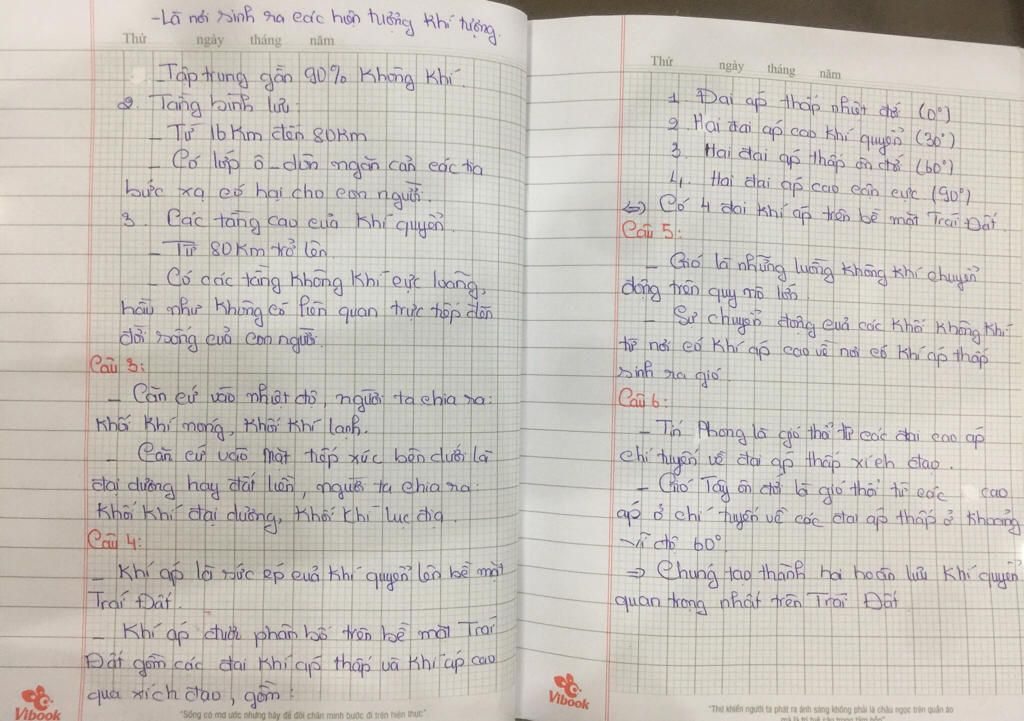 -Là nơi sinh ra các hiện tượng khí tượng.
Thứ ngày tháng năm
- Tập trung gần 90% không khí.
2. Tầng bình lưu:
- Từ 16km đến 80km
- Có lớp ô-dôn ngăn cản các tia
bức xạ có hại cho con người.
3. Các tầng cao của khí quyển.
- Từ 80km trở lên
- Có các tầng không khí cực loãng,
hầu như không có liên quan trực tiếp đến
đời sống của con người.
Câu 3:
- Căn cứ vào nhiệt độ, người ta chia ra:
khối khí nóng, khối khí lạnh.
- Căn cứ vào mặt tiếp xúc bên dưới là
đại dương hay đất liền, người ta chia ra:
khối khí đại dương, khối khí lục địa.
Câu 4:
- Khí áp là sức ép của khí quyển lên bề mặt
Trái Đất.
- Khí áp được phân bố trên bề mặt Trái
Đất gồm các đai khí áp thấp và khí áp cao
qua xích đạo, gồm:
Vibook
"Sống có mơ ước nhưng hãy để đôi chân mình bước đi trên hiện thực"
Thứ ngày tháng năm
1. Đai áp thấp nhiệt đới (0°)
2. Hai đai áp cao khí quyển (30°)
3. Hai đai áp thấp ôn đới (60°)
4. Hai đai áp cao cận cực (90°)
⇔ Có 4 đai khí áp trên bề mặt Trái Đất.
Câu 5:
- Gió là những luồng không khí chuyển
động trên quy mô lớn.
- Sự chuyển động của các khối không khí
từ nơi có khí áp cao về nơi có khí áp thấp
sinh ra gió.
Câu 6:
- Tín Phong là gió thổi từ các đai cao áp
chí tuyến về đai áp thấp xích đạo.
- Gió Tây ôn đới là gió thổi từ các cao
áp ở chí tuyến về các đai áp thấp ở khoảng
vĩ độ 60°.
⇒ Chúng tạo thành hai hoàn lưu khí quyển
quan trọng nhất trên Trái Đất
Vibook
"Thứ khiến người ta phát ra ánh sáng không phải là châu ngọc trên quần áo